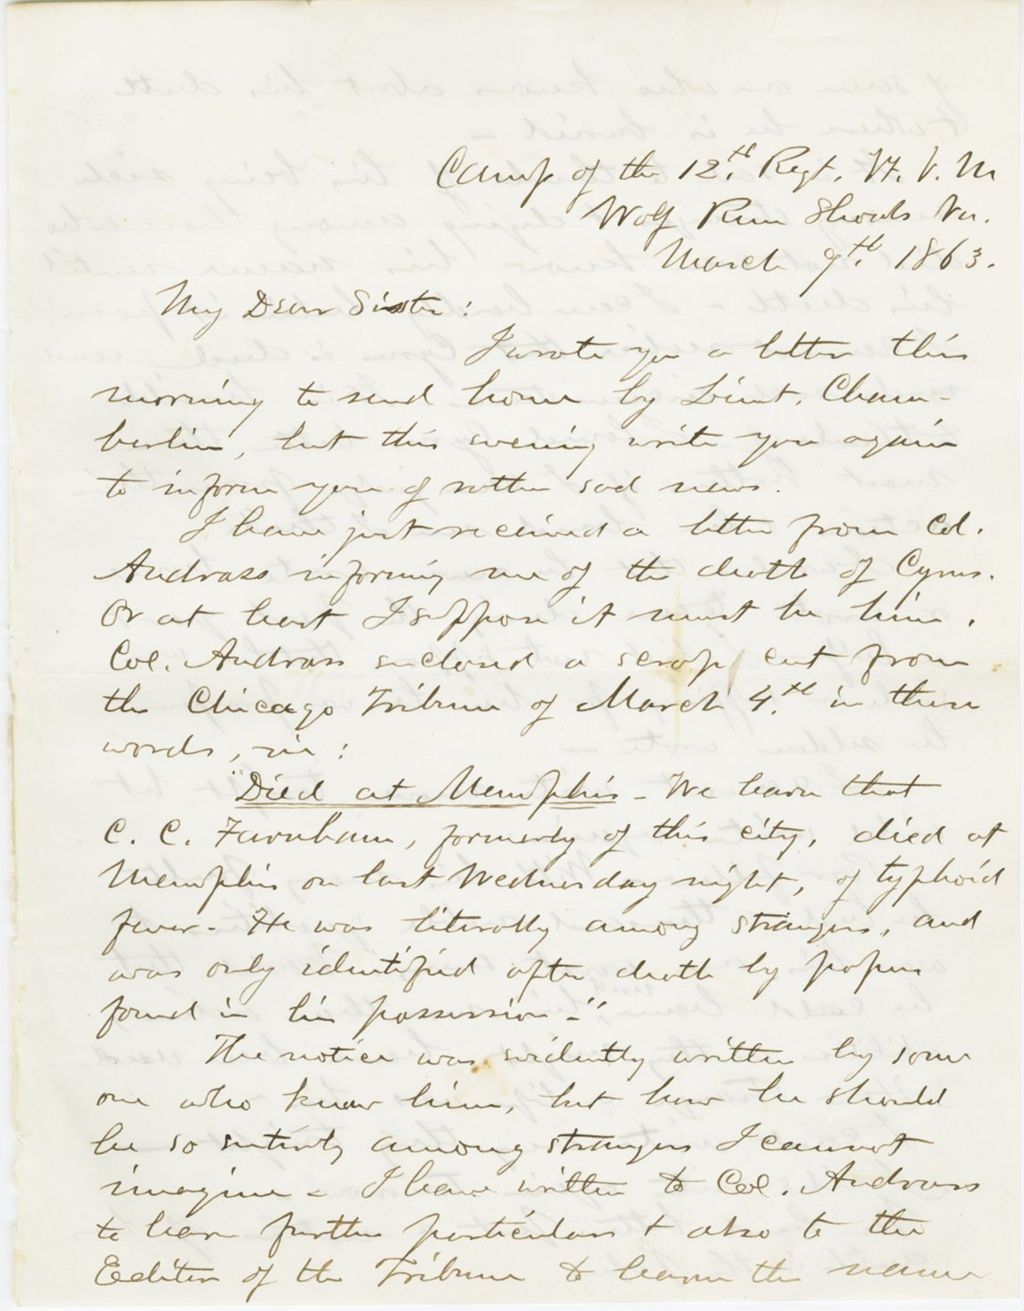 Camp of the 12th. Regt. Vt. V. M
Wolf Run Shoals Va.
March 9th. 1863.
My Dear Sister:
I wrote you a letter this
morning to send home by Lieut. Cham-
berlin, but this evening write you again
to inform you of rather sad news.
I have just received a letter from Col.
Andrass informing me of the death of Cyrus.
Or at least I suppose it must be him.
Col. Andrass enclosed a scrap cut from
the Chicago Tribune of March 4.th in these
words, viz:
"Died at Memphis - We learn that
C. C. Farnham, formerly of this city, died at
Memphis on last Wednesday night, of typhoid
fever - He was literally among strangers, and
was only identified after death by papers
found in his possession -"
The notice was evidently written by some
one who knew him, but how he should
be so entirely among strangers I cannot
imagine - I have written to Col. Andrass
to learn further particulars & also to the
Editor of the Tribune to learn the name